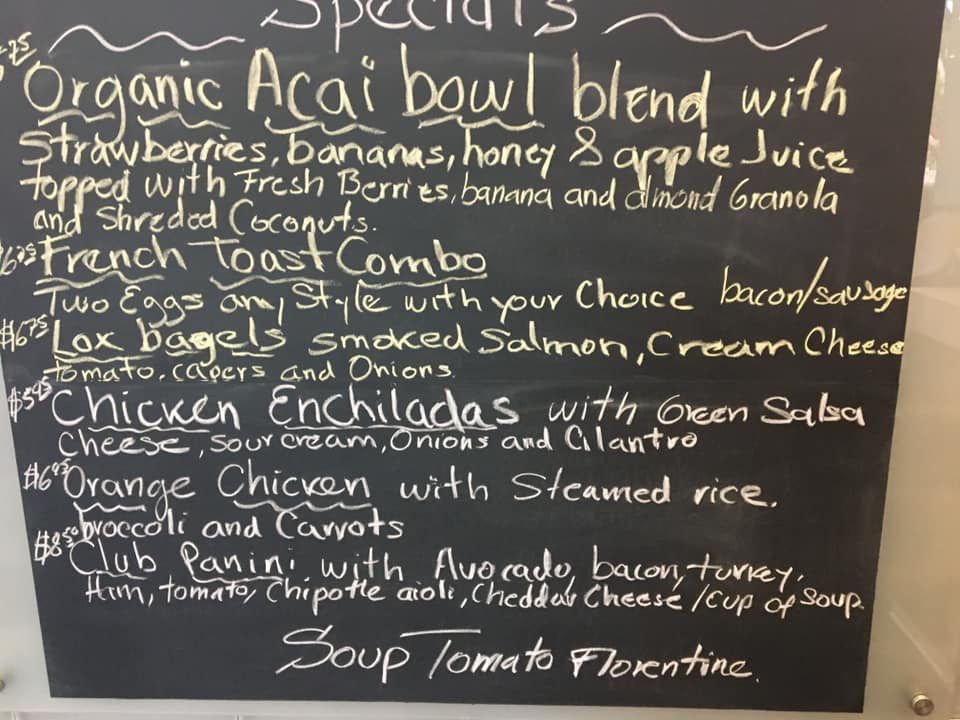 Specials
Organic Acai bowl blend with
Strawberries, bananas, honey & apple Juice
topped with Fresh Berries, banana and almond Granola
and Shreded Coconuts.
French Toast Combo
Two Eggs any Style with your Choice bacon/sausage
$6.75 Lox bagels smoked Salmon, Cream Cheese
tomato, capers and Onions.
$5.95 Chicken Enchiladas with Green Salsa
Cheese, sour cream, Onions and Cilantro
$6.95 Orange Chicken with Steamed rice.
broccoli and Carrots
$8.50 Club Panini with Avocado, bacon, turkey,
Ham, tomato, Chipotle aioli, Cheddar Cheese /cup of Soup.
Soup Tomato Florentine.